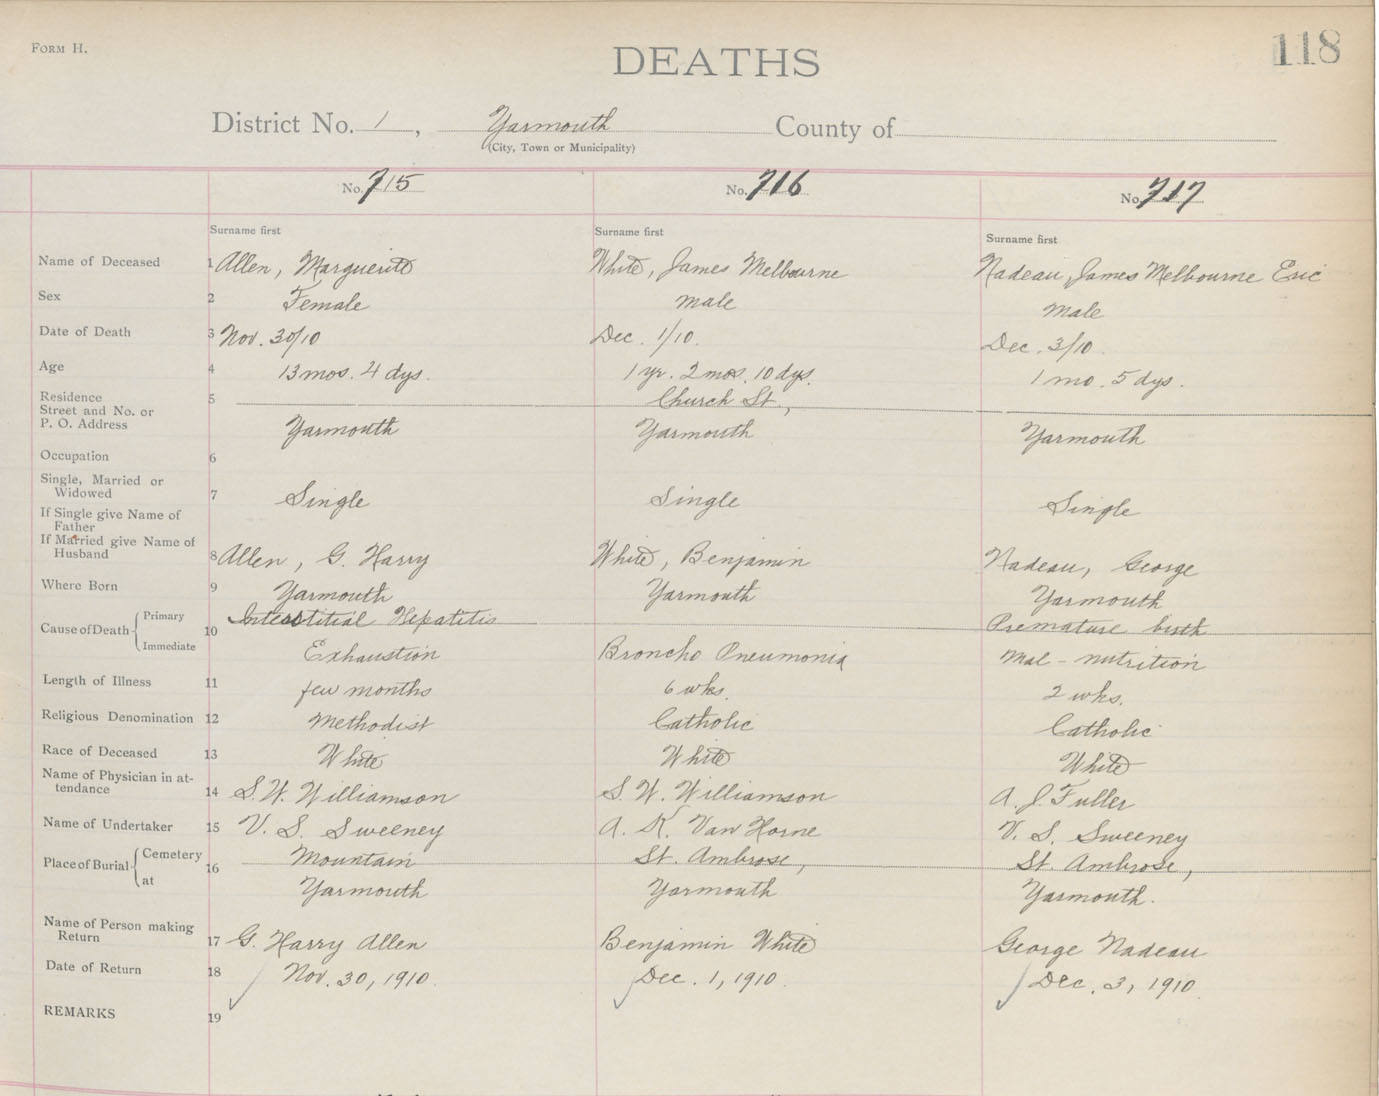 Form H.
DEATHS
118
District No. 1, Yarmouth County of
(City, Town or Municipality)
No. 715 No. 716 No. 717
Surname first Surname first Surname first
Name of Deceased 1 Allen, Marguerite White, James Melbourne Nadeau, James Melbourne Eric
Sex 2 Female male male
Date of Death 3 Nov. 30/10 Dec. 1/10. Dec. 3/10.
Age 4 13 mos. 4 dys. 1 yr. 2 mos. 10 dys. 1 mo. 5 dys.
Residence 5 Church St.,
Street and No. or
P. O. Address Yarmouth Yarmouth Yarmouth
Occupation 6
Single, Married or
Widowed 7 Single Single Single
If Single give Name of
Father
If Married give Name of
Husband 8 Allen, G. Harry White, Benjamin Nadeau, George
Where Born 9 Yarmouth Yarmouth Yarmouth
Cause of Death Primary 10 Interstitial Hepatitis Premature birth
Immediate Exhaustion Broncho Pneumonia Mal-nutrition
Length of Illness 11 few months 6 wks. 2 wks.
Religious Denomination 12 Methodist Catholic Catholic
Race of Deceased 13 White White White
Name of Physician in at-
tendance 14 S. W. Williamson S. W. Williamson A. J. Fuller
Name of Undertaker 15 V. S. Sweeney A. K. Van Horne V. S. Sweeney
Place of Burial Cemetery 16 Mountain St. Ambrose, St. Ambrose,
at Yarmouth Yarmouth Yarmouth.
Name of Person making
Return 17 G. Harry Allen Benjamin White George Nadeau
Date of Return 18 Nov. 30, 1910. Dec. 1, 1910. Dec. 3, 1910.
REMARKS 19